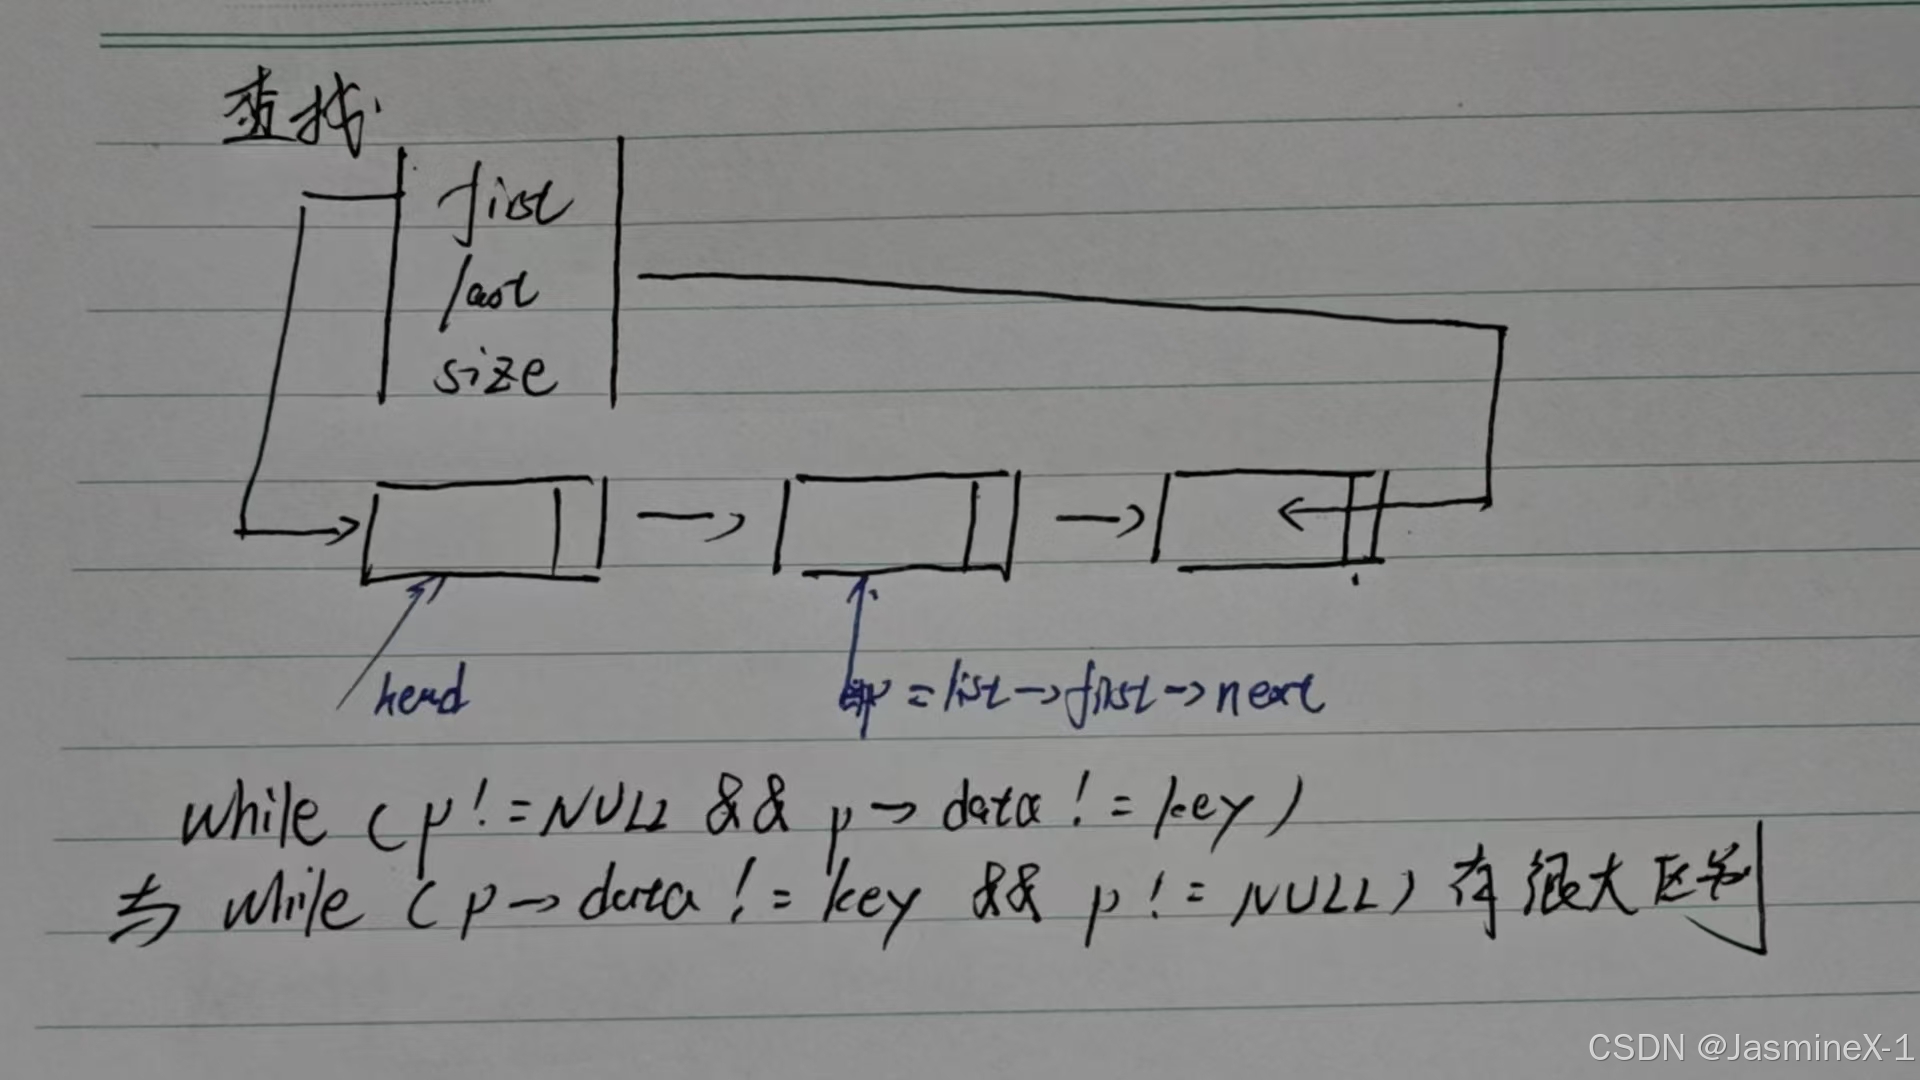 查找
first
last
size
head
p = list→first→next
while (p != NULL && p→data != key)
与 while (p→data != key && p != NULL) 有很大区别
CSDN @JasmineX-1